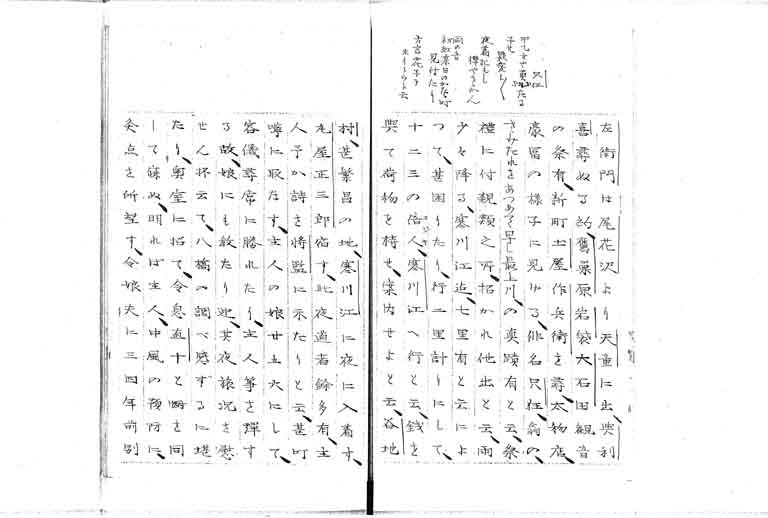 左衛門は尾花沢より天童に出典利
喜尋ぬる的舊粟原岩袋大石田観音
の条有新町土屋作兵衛を尋太物店
豪冨の様子に見ゆる俳名只狂翁の
さみたれをあつめて早し最上川の真蹟有と云祭
禮に付親類之所招かれ他出と云雨
少々降る寒川江迄七里有と云によ
つて甚困りたり行二里計りにして
十二三の倍人寒川江へ行と云銭を
與て荷物を持せ案内せよと云谷地
村甚繁昌の地寒川江に夜に入着す
丸屋正三郎宿す此夜道者餘多有主
人予か詩を将監に示たりと云甚町
嚀に取なす主人の娘廿五六にして
容儀尋常に勝れたり主人筝を弾す
る故娘にも教たり迚其夜旅况を慰
せん抔云て八橋の調べ感ずるに堪
たり奥室に招て令息直十と 同
して寐ぬ明れば主人中風の預防に
灸点を所望す令娘夫に三四年前別